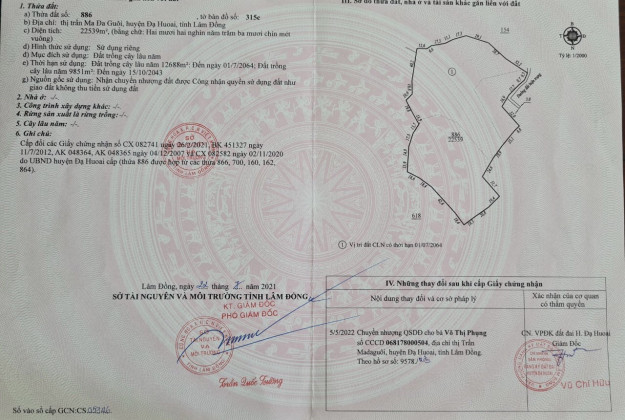 1. Thửa đất:
a) Thửa đất số: 886 , tờ bản đồ số: 315c
b) Địa chỉ: thị trấn Ma Đa Guôi, huyện Đạ Huoai, tỉnh Lâm Đồng
c) Diện tích: 22539m², (bằng chữ: Hai mươi hai nghìn năm trăm ba mươi chín mét
vuông)
d) Hình thức sử dụng: Sử dụng riêng
đ) Mục đích sử dụng: Đất trồng cây lâu năm
e) Thời hạn sử dụng: Đất trồng cây lâu năm 12688m² Đến ngày 01/7/2064; Đất trồng
cây lâu năm 9851m² Đến ngày 15/10/2043
g) Nguồn gốc sử dụng: Nhận chuyển nhượng đất được Công nhận quyền sử dụng đất như
giao đất không thu tiền sử dụng đất
2. Nhà ở: -/-
3. Công trình xây dựng khác: -/-
4. Rừng sản xuất là rừng trồng: -/-
5. Cây lâu năm: -/-
6. Ghi chú:
Cấp đổi các Giấy chứng nhận số CX 082741 ngày 26/2/2021, BK 451327 ngày
11/7/2012, AK 048364, AK 048365 ngày 04/12/2007 và CX 082582 ngày 02/11/2020
do UBND huyện Đạ Huoai cấp (thửa 886 được hợp từ các thửa 866, 700, 160, 162,
864).
Lâm Đồng, ngày tháng năm 2021
SỞ TÀI NGUYÊN VÀ MÔI TRƯỜNG TỈNH LÂM ĐỒNG
KT. GIÁM ĐỐC
PHÓ GIÁM ĐỐC
SỞ
TÀI NGUYÊN
VÀ
MÔI TRƯỜNG
Số vào sổ cấp GCN:CS
III. Sơ đồ thửa đất, nhà ở và tài sản khác gắn liền với đất
Tỷ lệ 1/2000
154
1
886
22539
618
1 Vị trí đất CLN có thời hạn 01/07/2064
IV. Những thay đổi sau khi cấp Giấy chứng nhận
Nội dung thay đổi và cơ sở pháp lý
Xác nhận của cơ quan
có thẩm quyền
5/5/2022 Chuyển nhượng QSDĐ cho bà Vũ Thị Phụng
số CCCD 068178000504, địa chỉ thị Trấn
Mađaguôi, huyện Đạ Huoai, tỉnh Lâm Đồng.
Theo hồ sơ số: 9578
CN. VPĐK đất đai H. Đạ Huoai
Giám Đốc
Vũ Chí Hữu